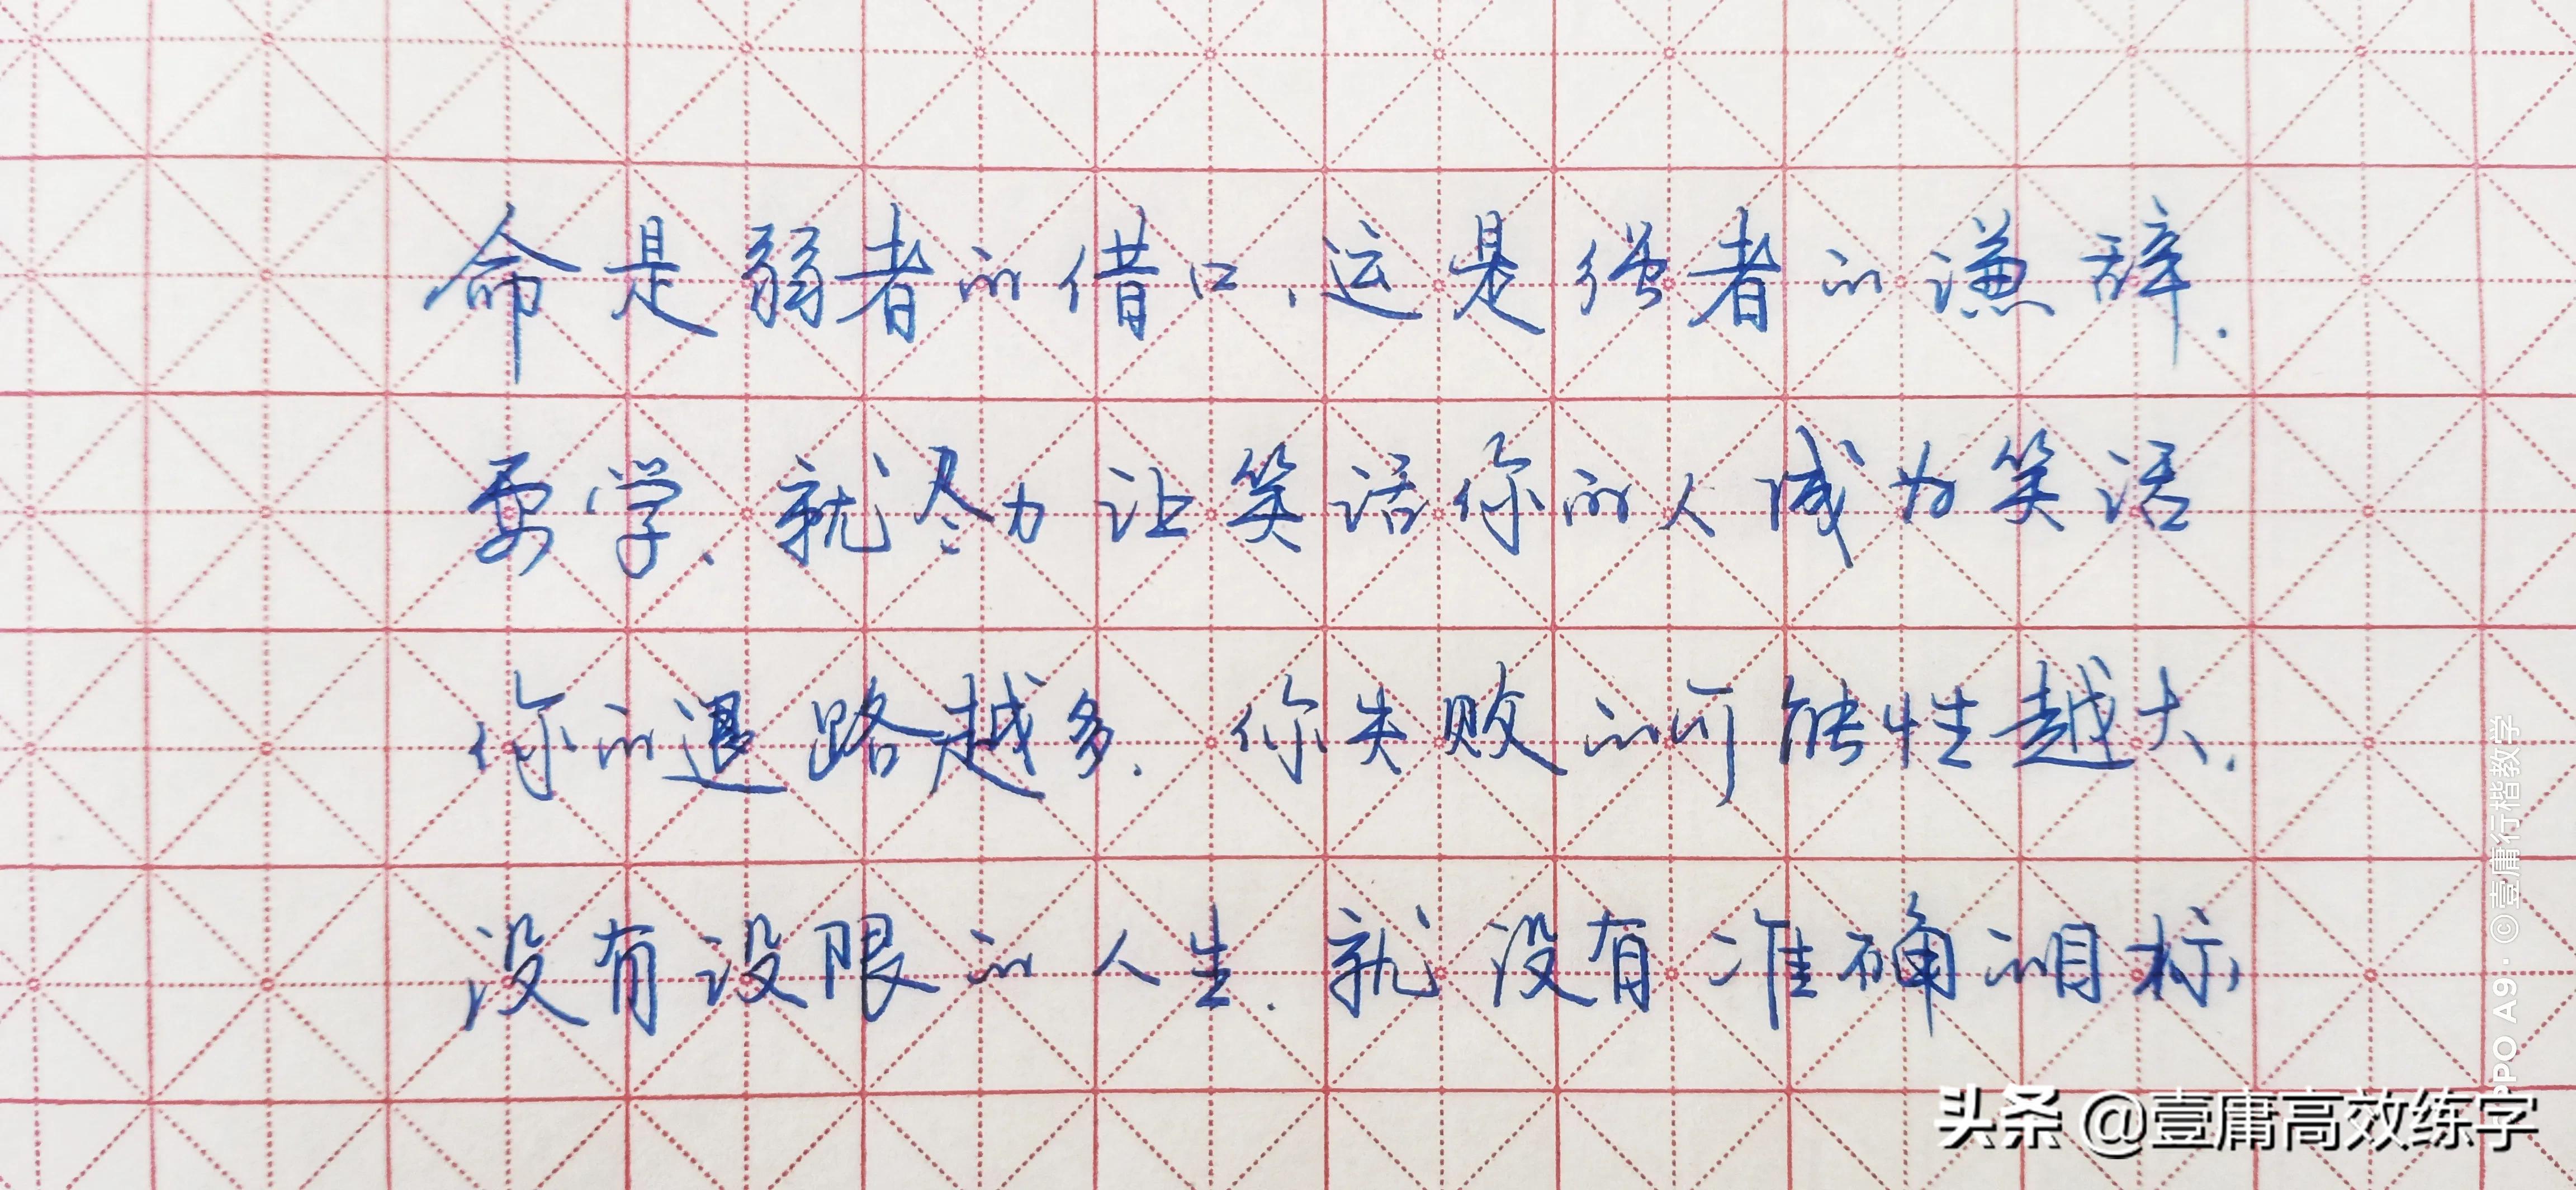 命是弱者的借口,运是强者的谦辞.
要学、就尽力让笑话你的人成为笑话
你的退路越多.你失败的可能性越大.
没有设限的人生.就没有准确的目标,
PPO A9·©壹庸行楷教学
头条 @壹庸高效练字